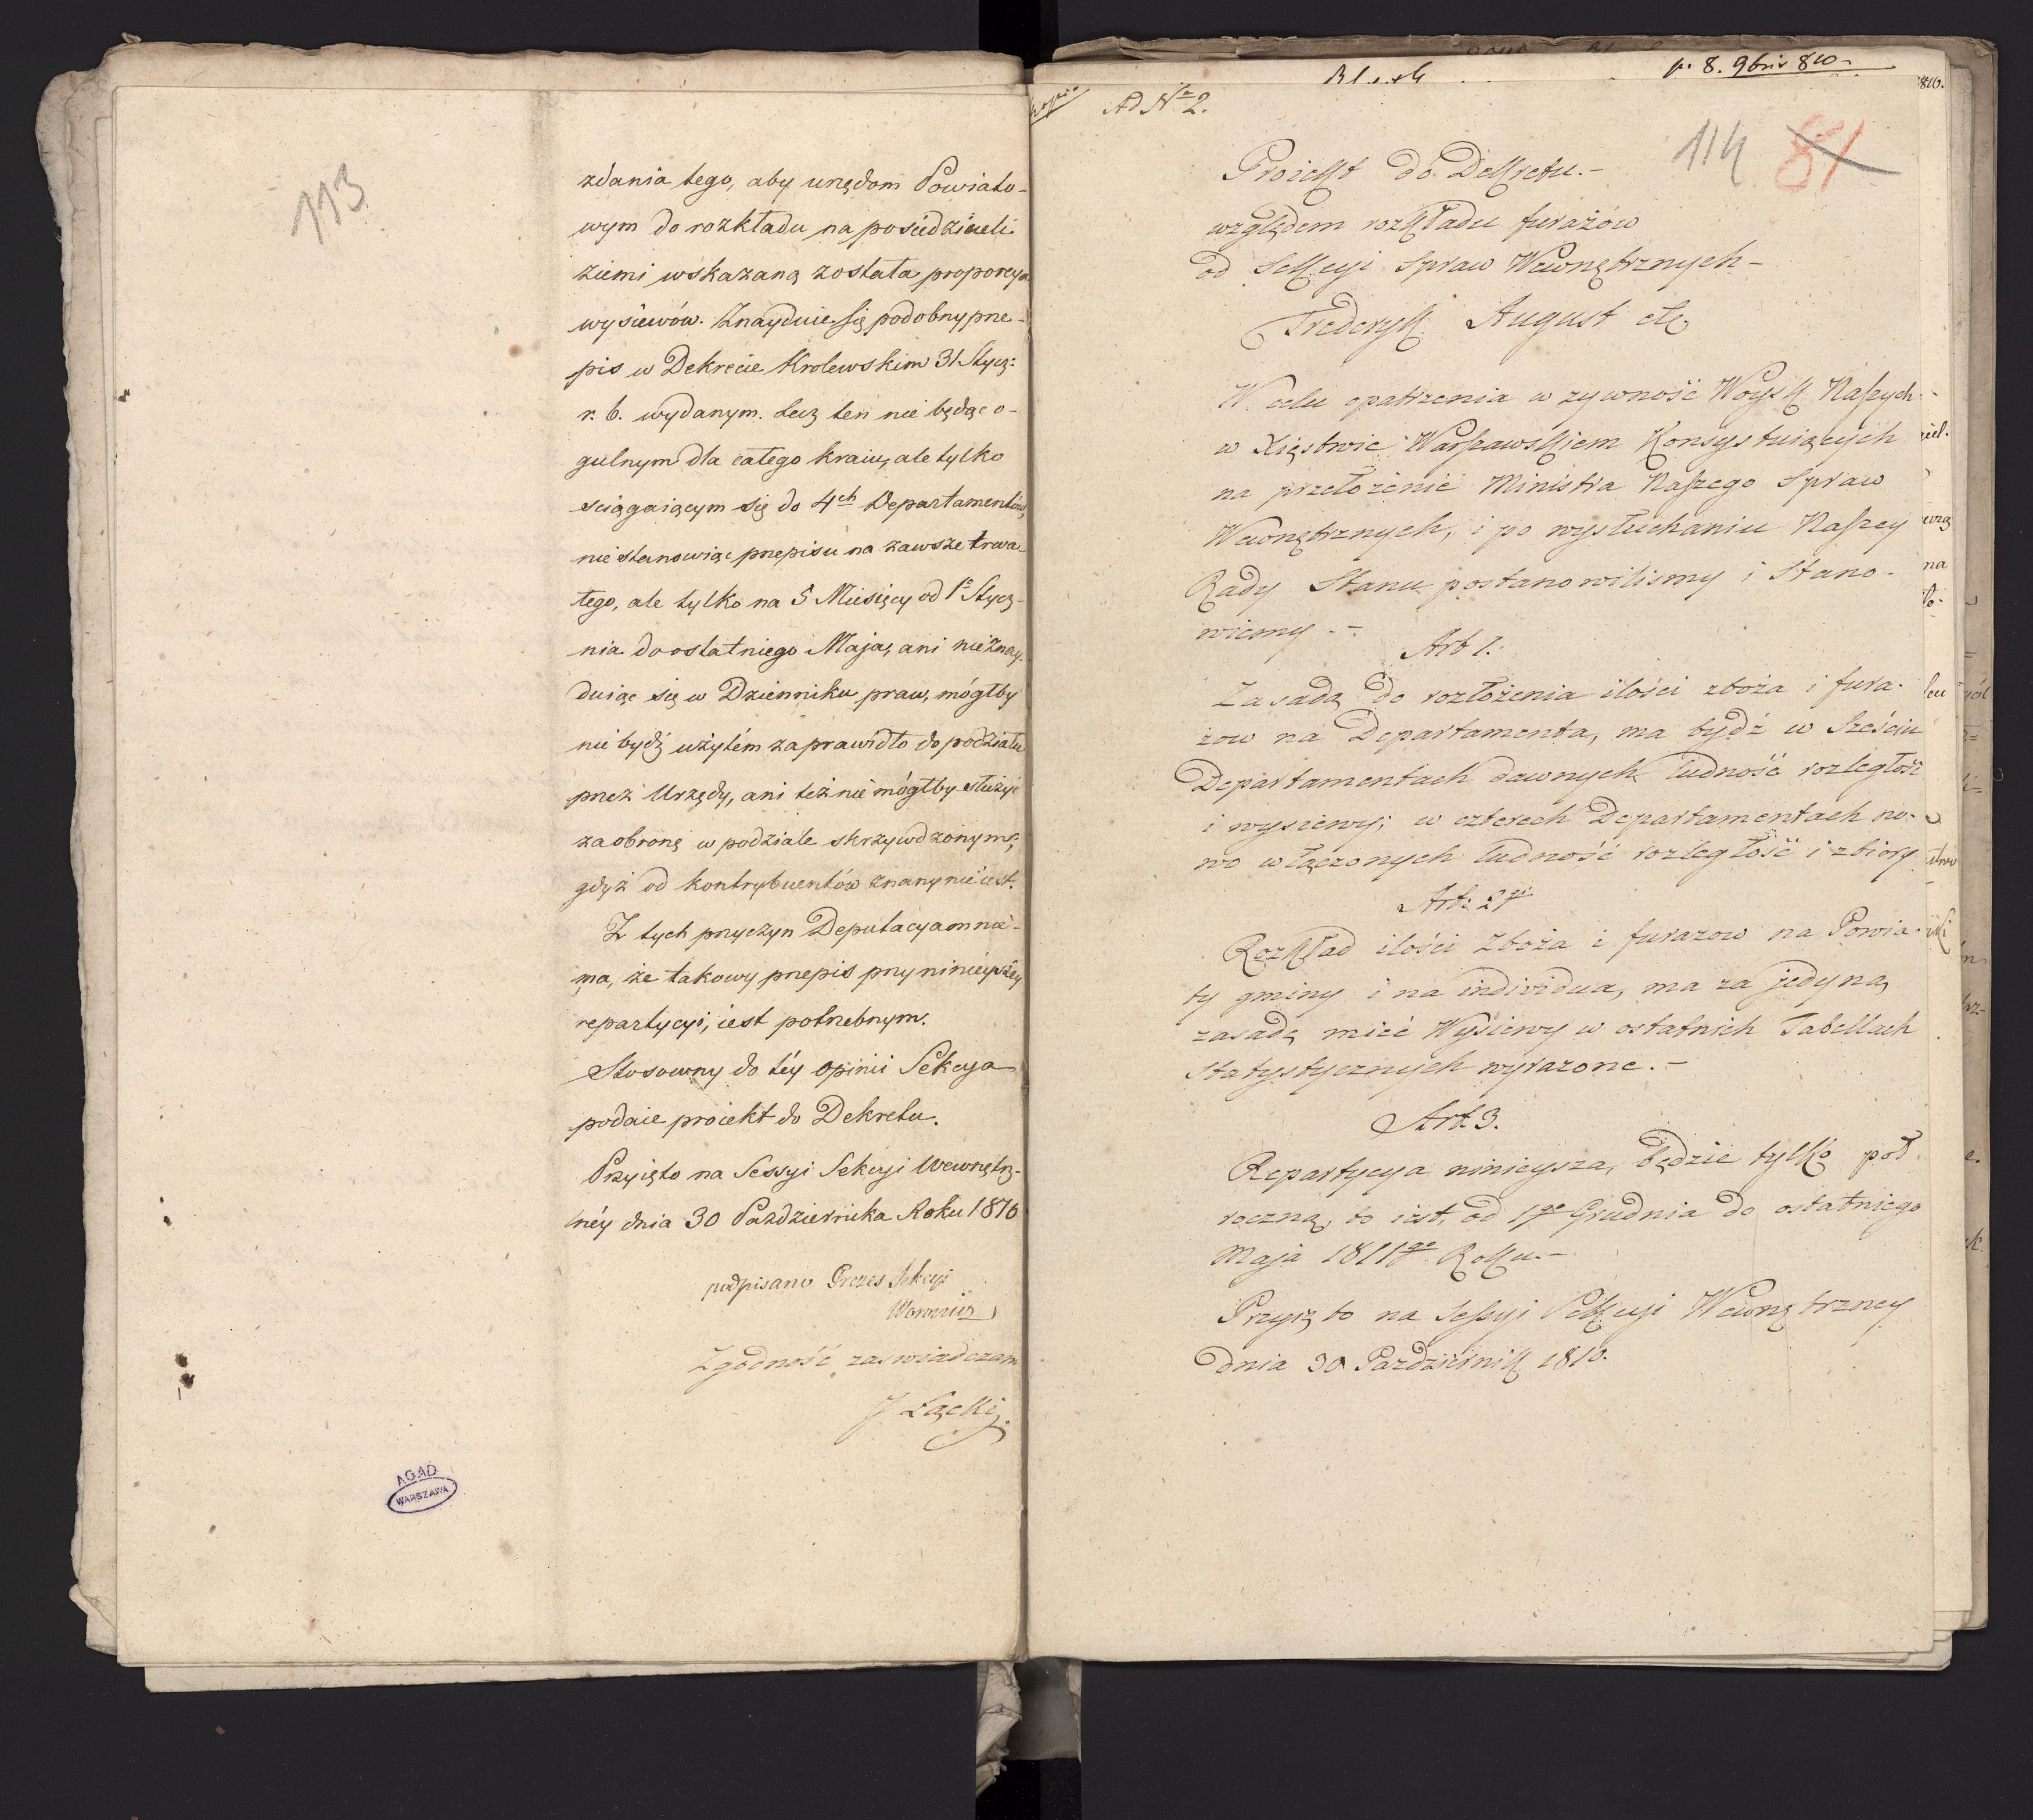 113
zdania tego, aby urzędom Powiato-
wym do rozkładu na posiedzicieli
ziemi wskazaną została proporcya
wysiewów. Znayduie się podobny prze-
pis w Dekrecie Krolewskim 31 Stycz:
r. b. wydanym. Lecz ten nie będąc o-
gulnym dla całego kraiu, ale tylko
sciągaiącym się do 4ch Departamentów,
nie stanowiąc przepisu na zawsze trwa-
łego, ale tylko na 5 Miesięcy od 1o Stycz-
nia do ostatniego Maja, ani nie znay-
duiąc się w Dzienniku praw, mógłby
nie bydź użytem za prawidło do podziału
przez Urzędy, ani też nie mógłby służyć
za obronę w podziale skrzywdzonym,
gdyż od kontrybuentów znany nie iest.
Z tych przyczyn Deputacya mnie-
ma, że takowy przepis przy ninieyszey
repartycyi, iest potrzebnym.
Stosowny do téy opinii Sekcya
podaie proiekt do Dekretu.
Przyięto na Sessyi Sekcyi Wewnętrz-
néy dnia 30 Października Roku 1810
podpisano Prezes Sekcyi
Woronicz
Zgodność zaswiadczam
J Łącki
AGAD
WARSZAWA
p. 8. 9bris 810
Ad No 2.
114 81
Proiekt do Dekretu.-
względem rozkładu furażów
od Sekcyi Spraw Wewnętrznych-
Frederyk August etc
W celu opatrzenia w zywność Woysk Naszych
w Xięstwie Warszawskiem Konsystuiących
na przełożenie Ministra Naszego Spraw
Wewnętrznych, i po wysłuchaniu Naszey
Rady Stanu postanowilismy i Stano-
wiemy --
Art 1.
Zasadą do rozłożenia ilości zboża i fura-
żow na Departamenta, ma bydź w Sześciu
Departamentach dawnych ludność rozległość
i wysiewy; w czterech Departamentach no-
wo włączonych ludność rozległość i zbiory.
Art: 2gi
Rozkład ilości Zboża i furazow na Powia-
ty gminy i na individua, ma za jedyną
zasadę mieć Wysiewy w ostatnich Tabellach
Statystycznych wyrazone.-
Art. 3.
Repartycya ninieysza, będzie tylko poł
roczną, to iest, od 1go Grudnia do ostatniego
Maja 1811go Roku.-
Przyięto na Sessyi Sekcyi Wewnętrzney
dnia 30 Październik 1810.